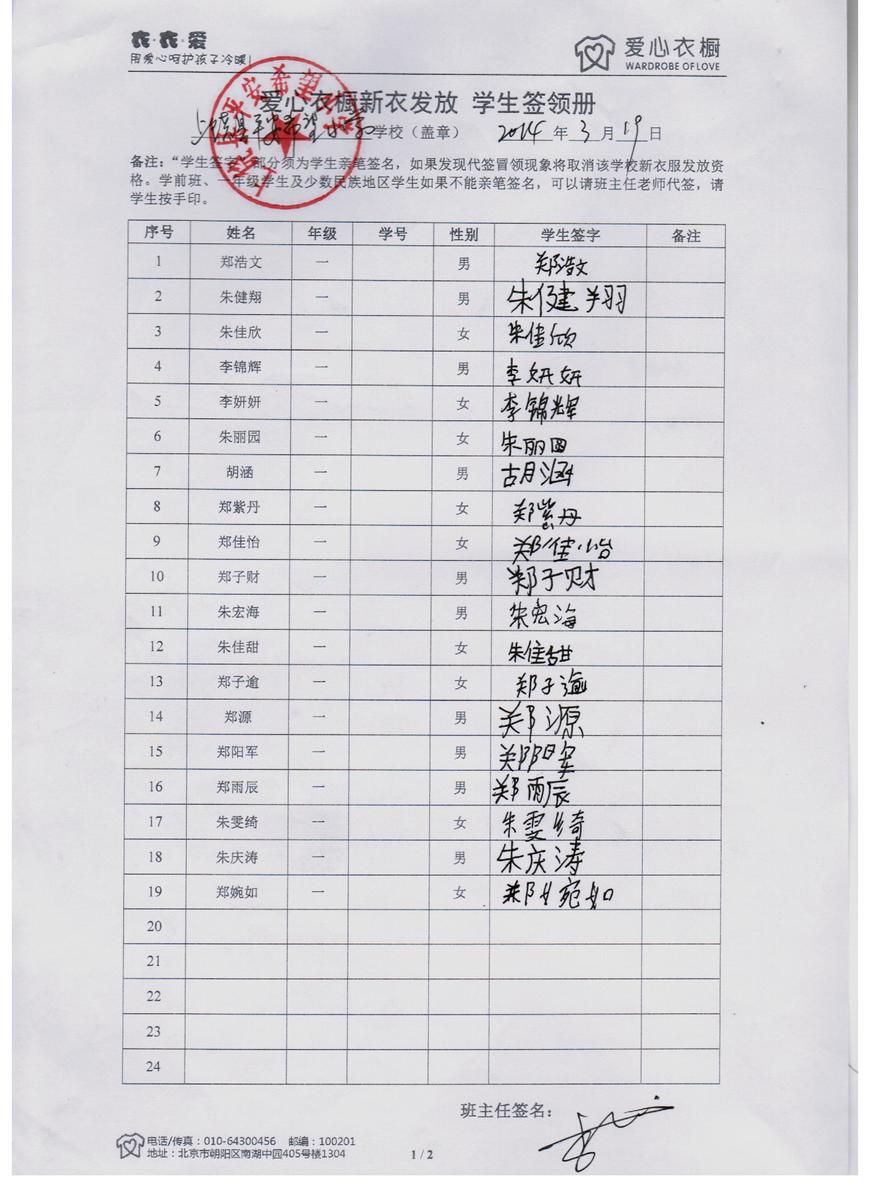 衣·衣·爱
用爱心呵护孩子冷暖!
爱心衣橱
WARDROBE OF LOVE
爱心衣橱新衣发放 学生签领册
上饶县平安希望小学 学校（盖章） 2014 年 3 月 19 日
上饶县平安希望小学
备注：“学生签字”部分须为学生亲笔签名，如果发现代签冒领现象将取消该学校新衣服发放资
格。学前班、一年级学生及少数民族地区学生如果不能亲笔签名，可以请班主任老师代签，请
学生按手印。
序号 姓名 年级 学号 性别 学生签字 备注
1 郑浩文 一 男 郑浩文
2 朱健翔 一 男 朱健翔
3 朱佳欣 一 女 朱佳欣
4 李锦辉 一 男 李妍妍
5 李妍妍 一 女 李锦辉
6 朱丽园 一 女 朱丽园
7 胡涵 一 男 胡涵
8 郑紫丹 一 女 郑紫丹
9 郑佳怡 一 女 郑佳怡
10 郑子财 一 男 郑子财
11 朱宏海 一 男 朱宏海
12 朱佳甜 一 女 朱佳甜
13 郑子逾 一 女 郑子逾
14 郑源 一 男 郑源
15 郑阳军 一 男 郑阳军
16 郑雨辰 一 男 郑雨辰
17 朱雯绮 一 女 朱雯绮
18 朱庆涛 一 男 朱庆涛
19 郑婉如 一 女 郑婉如
20
21
22
23
24
班主任签名：
电话/传真：010-64300456 邮编：100201
地址：北京市朝阳区南湖中园405号楼1304
1 / 2